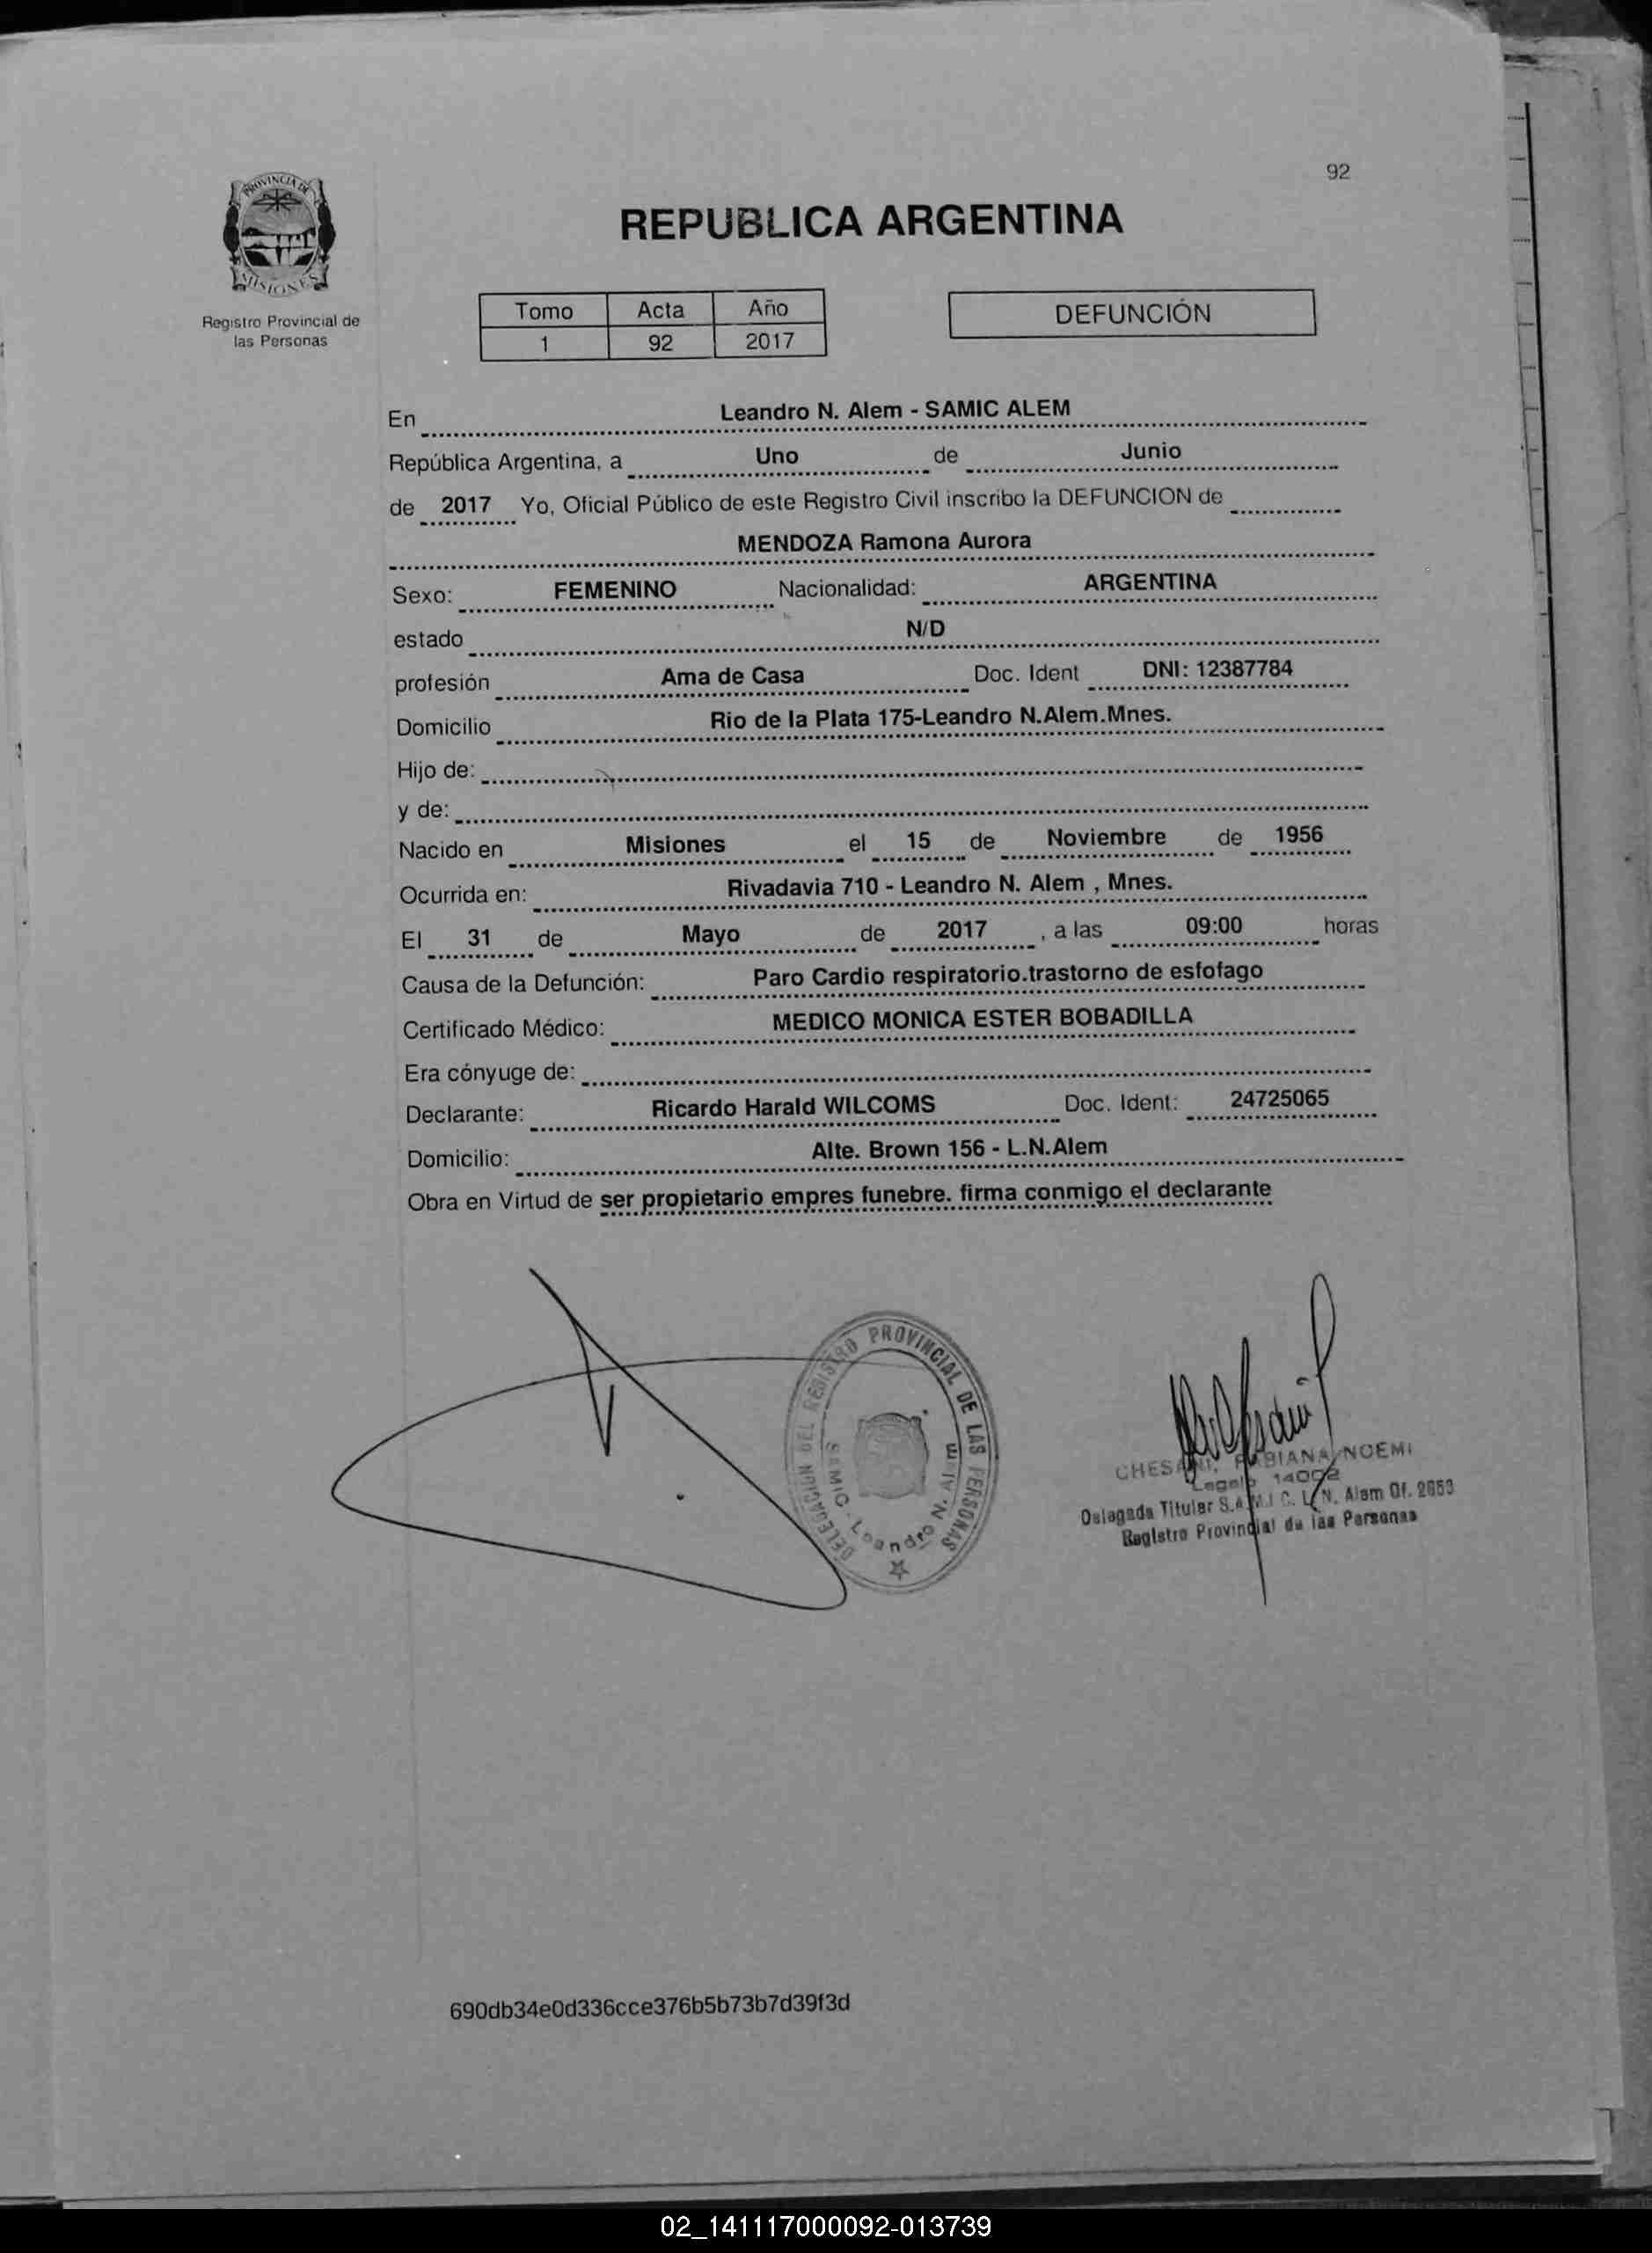 92
PROVINCIA DE
MISIONES
Registro Provincial de
las Personas
REPUBLICA ARGENTINA
Tomo Acta Año
1 92 2017
DEFUNCIÓN
En Leandro N. Alem - SAMIC ALEM
República Argentina, a Uno de Junio
de 2017 Yo, Oficial Público de este Registro Civil inscribo la DEFUNCION de
MENDOZA Ramona Aurora
Sexo: FEMENINO Nacionalidad: ARGENTINA
estado N/D
profesión Ama de Casa Doc. Ident DNI: 12387784
Domicilio Rio de la Plata 175-Leandro N.Alem.Mnes.
Hijo de:
y de:
Nacido en Misiones el 15 de Noviembre de 1956
Ocurrida en: Rivadavia 710 - Leandro N. Alem , Mnes.
El 31 de Mayo de 2017 , a las 09:00 horas
Causa de la Defunción: Paro Cardio respiratorio.trastorno de esfofago
Certificado Médico: MEDICO MONICA ESTER BOBADILLA
Era cónyuge de:
Declarante: Ricardo Harald WILCOMS Doc. Ident: 24725065
Domicilio: Alte. Brown 156 - L.N.Alem
Obra en Virtud de ser propietario empres funebre. firma conmigo el declarante
DELEGACION DEL REGISTRO PROVINCIAL DE LAS PERSONAS
SAMIC - Leandro N. Alem
CHESANI, FABIANA NOEMI
Legajo 14002
Delegada Titular S.A.M.I.C. L.N. Alem Of. 2653
Registro Provincial de las Personas
690db34e0d336cce376b5b73b7d39f3d
02_141117000092-013739